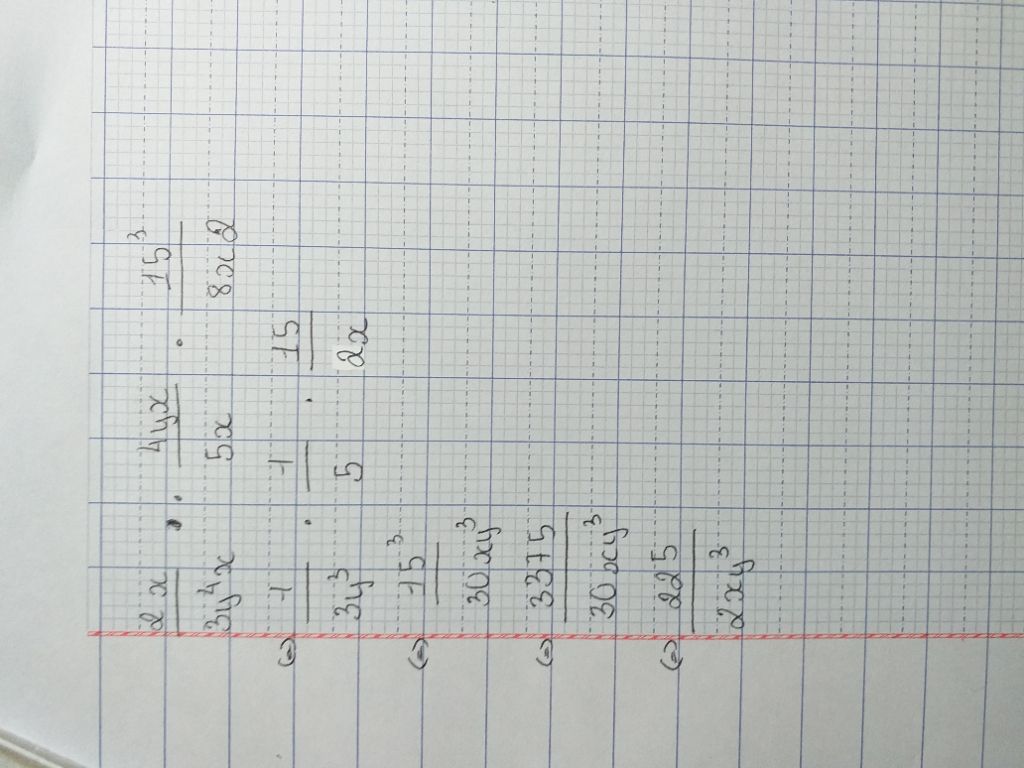 2x/3y⁴x · 4yx/5x · 15³/8x2
(=) 1/3y³ · 1/5 · 15/2x
(=) 15³/30xy³
(=) 3375/30xy³
(=) 225/2xy³